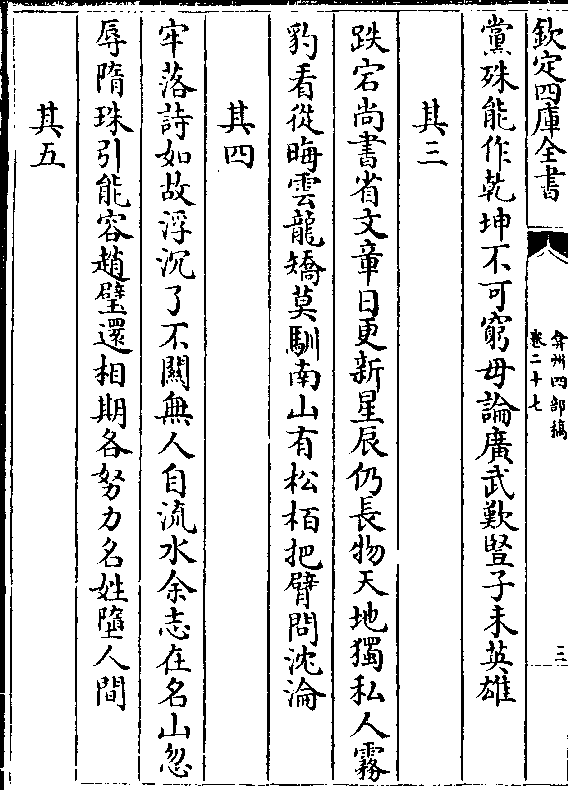 欽定四庫全書
弇州四部稿
卷二十七
三
黨殊能作乾坤不可窮毋論廣武歎豎子未英雄
其三
跌宕尚書省文章日更新星辰仍長物天地獨私人霧
豹看從晦雲龍矯莫馴南山有松栢把臂問沈淪
其四
牢落詩如故浮沉了不關無人自流水余志在名山忽
辱隋珠引能容趙璧還相期各努力名姓墮人間
其五